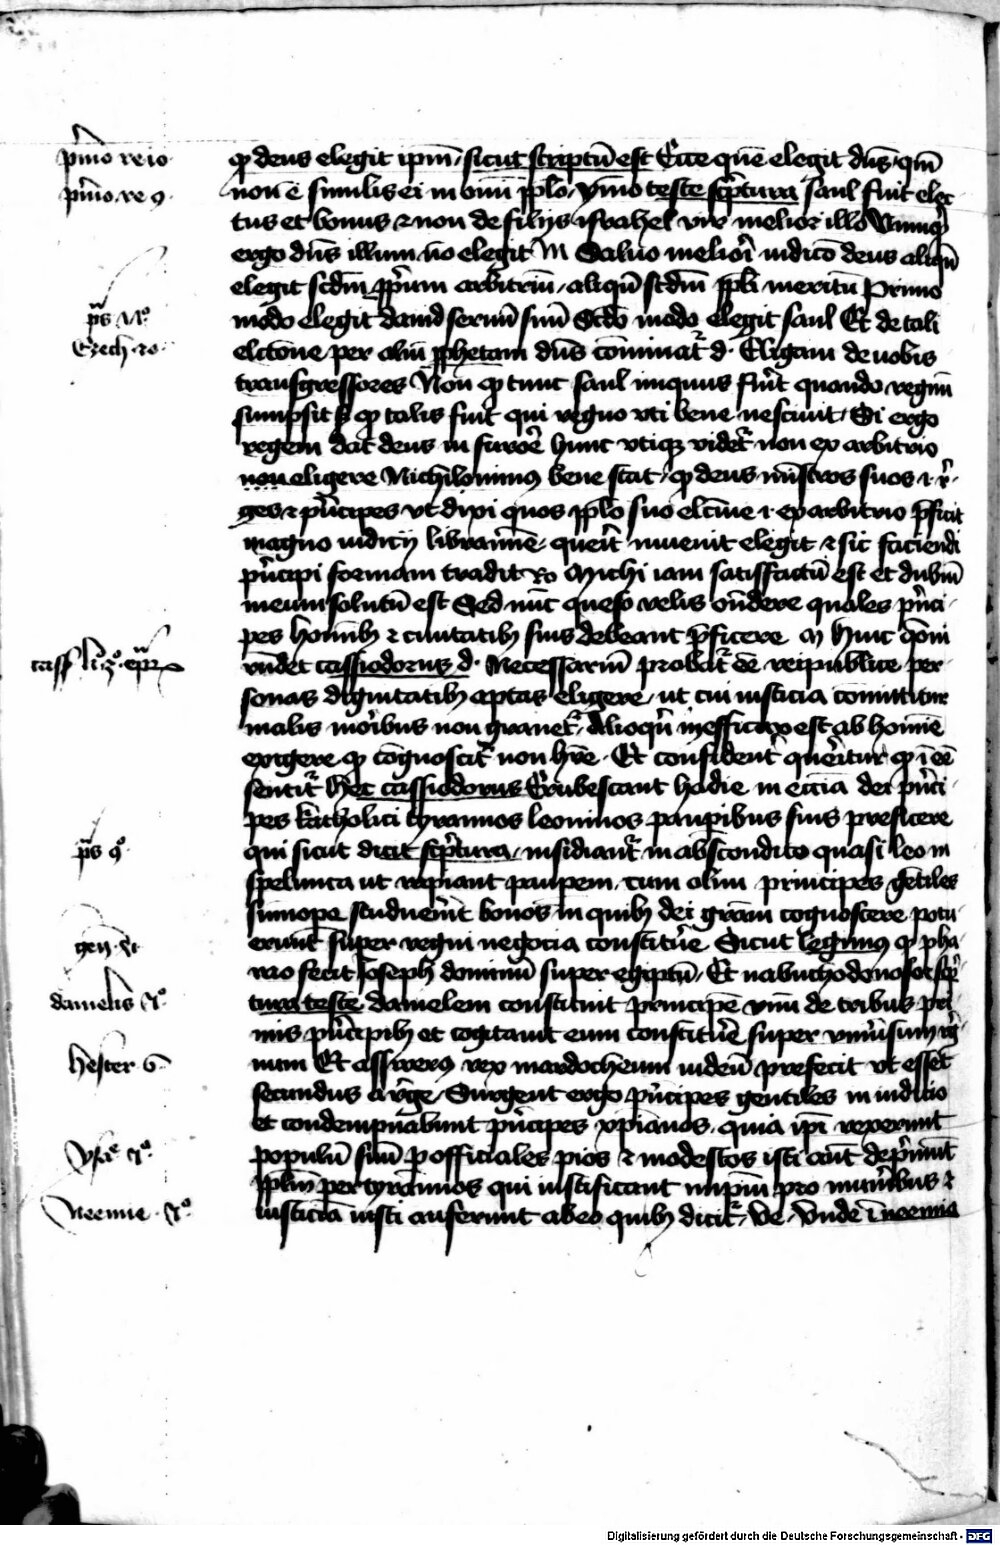 pͥmo re io
pͥmo. re 9
p̄s .11º.
Ezech. 20.
cass li. 2º. epͣr
p̄s 9º.
gen. 41
danielis 6º.
hester 6
ysaͤ 5º.
Neemie . 5º.
ꝙ deus elegit ipm̄ / sicut scriptū est Ecce quē elegit dn̄s / qm̄
non ē similis ei in omī pplo / ymo teste scͥptura saul fuit elec
tus et bonus ⁊ non de filijs israhel vir melior illo Nunqͥd
ergo dn̄s illum nō elegit M Saluo meliorͥ iudicō deus aliqn̄
elegit scdm̄ ꝓpͥum arbitriū / aliqn̄ scdm̄ ppli meritū Primo
modo elegit dauid seruū suū Scdō modo elegit saul Et de tali
elctōne per aliū ꝓphetam dn̄s cōminatͬ d. Eligam de uobis
transgressores Non ꝙ tunc saul iniquus fuͥit quando regnū
sumpsit ꝙ talis fuit qui regno vti bene nesciuit / Si ergo
regem dat deus in furorē hunc vtiqꝫ videtͬ non ex arbitrio
non eligere Nichilominus bene stat / ꝙ deus mīstros suos ⁊ r̄
ges ⁊ pͥncipes vt dixi quos pplo suo elctīue ⁊ ex arbitrio p̄ficit
magno iudicij libramīe. queͥit inuenit elegit ⁊ sic faciendi
pͥncipi formam tradit Ro Michi iam satisffactū est et dubiū
meum solutū est Sed nūc queso velis on̄dere quales pͥnci
pes hominibꝫ ⁊ ciuitatibꝫ suis debeant p̄ficere M Hunc qōni
rn̄det cassiodorus d. Necessariū probatͬ ēē reipublice per
sonas dignitatibꝫ aptas eligere / ut cui iusticia cōmittitur
malis moͥibus non grauetͬ. Alioqͥn inefficax est ab homīe
exigere ꝙ cōgnoscitͬ non hr̄e. Et confidentͬ querͥitur ꝙ ī eē
sentitͬ Hec cassiodorus Erubescant hodie in eccīa dei pͥnci
pes katholici tyrannos leoninos pauꝑibus suis preficere
qui sicut dicit scͥptura / insidiantͬ in abscondito quasi leo in
spelunca ut rapiant pauꝑem / cum olim principes gētiles
summope studueͥnt bonos in quibꝫ dei grām cognoscere potu
erunt super regni negocia constituͤe Sicut legimus ꝙ pha
rao fecit Joseph dominū super egiptū / Et nabuchodonosor scͥp
tura teste danielem constituit principē vnū de tribus pri
mis pͥncipibꝫ et cogitauit eum constituͤe super vniūsum rͤg
num Et assuerus rex mardocheum iudeū prefecit vt esset
secundus a rͤge / Surgent ergo pͥncipes gentiles in iudicio
et condempnabunt pͥncipes xpīanos. quia ipī rexerunt
populū suū ꝑ officiales pios ⁊ modestos isti aūt depͥmūt
pplm̄ per tyrannos qui iustificant impiū pro munͤibus ⁊
iusticiā iusti auferunt ab eo quibꝫ dicitͬ. ve. Vnde ī neemia
Digitalisierung gefördert durch die Deutsche Forschungsgemeinschaft - DFG